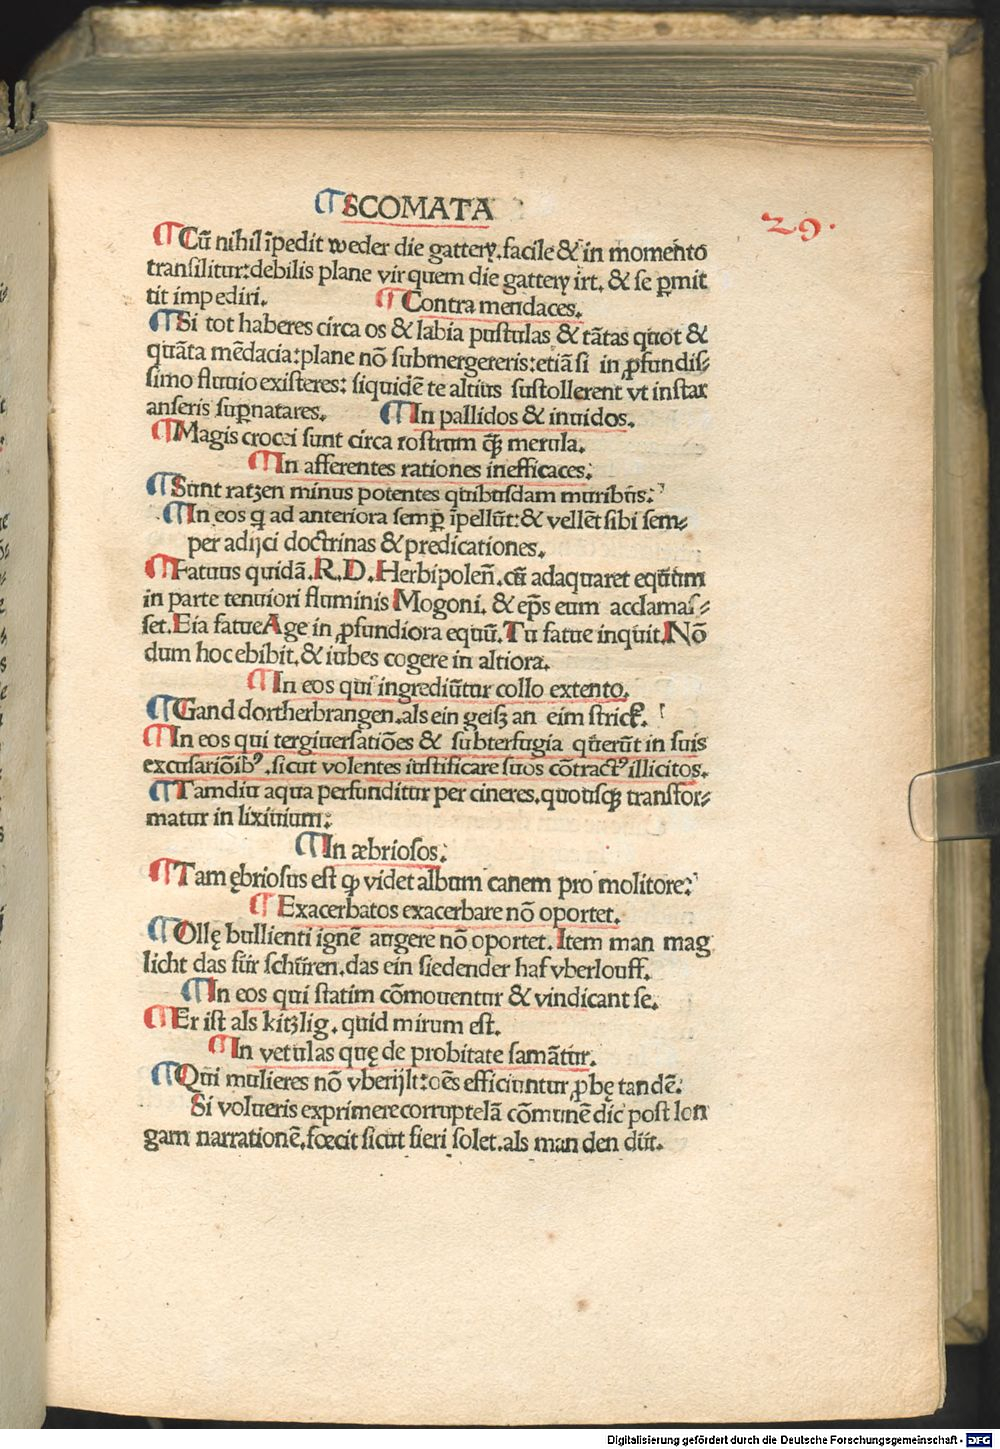 ¶SCOMATA
29.
¶Cū nihil īpedit weder die gattery. facile & in momēto
transilitur: debilis plane vir quem die gattery irt. & se ꝑmit
tit impediri. ¶Contra mendaces.
¶Si tot haberes circa os & labia pustulas & tātas quot &
quāta mēdacia: plane nō submergereris: etiā si in ꝓfundis⸗
simo fluuio existeres: siquidē te altius sustollerent vt instar
anseris suꝑnatares. ¶In pallidos & inuidos.
¶Magis crocei sunt circa rostrum q̄ꝫ merula.
¶In afferentes rationes inefficaces.
¶Sunt ratzen minus potentes quibusdam muribus.
¶In eos q̇ ad anteriora semꝑ īpellūt: & vellēt sibi sem⸗
per adijci doctrinas & predicationes.
¶Fatuus quidā. R. D. Herbipoleñ. cū adaquaret equum
in parte tenuiori fluminis Mogoni. & ep̄s eum acclamas⸗
set. Eia fatue Age in ꝓfundiora equū. Tu fatue inquit. Nō
dum hoc ebibit. & iubes cogere in altiora.
¶In eos qui ingrediūtur collo extento.
¶Gand dortherbrangen. als ein geiß an eim strick.
¶In eos qui tergiuersatiōes & subterfugia querūt in suis
excusatiōibꝰ. sicut volentes iustificare suos cōtractꝰ illicitos.
¶Tamdiu aqua perfunditur per cineres. quousqꝫ transfor⸗
matur in lixiuium.
¶In æbriosos.
¶Tam ębriosus est ꝙ videt album canem pro molitore.
¶Exacerbatos exacerbare nō oportet.
¶Ollę bullienti ignē augere nō oportet. Item man mag
licht das für schüren. das ein siedender haf vberlouff.
¶In eos qui statim cōmouentur & vindicant se.
¶Er ist als kitzlig. quid mirum est.
¶In vetulas quę de probitate famātur.
¶Qui mulieres nō vberijlt: oēs efficiuntur ꝓbę tandē.
Si volueris exprimere corruptelā cōmunē dic post lon
gam narrationē. fœcit sicut fieri solet. als man den düt.
Digitalisierung gefördert durch die Deutsche Forschungsgemeinschaft - DFG